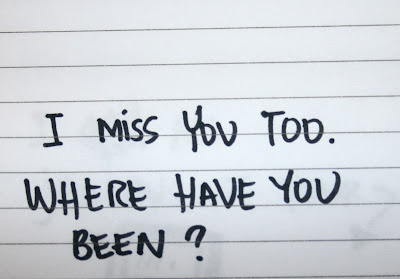 I MISS YOU TOO.
WHERE HAVE YOU
BEEN ?